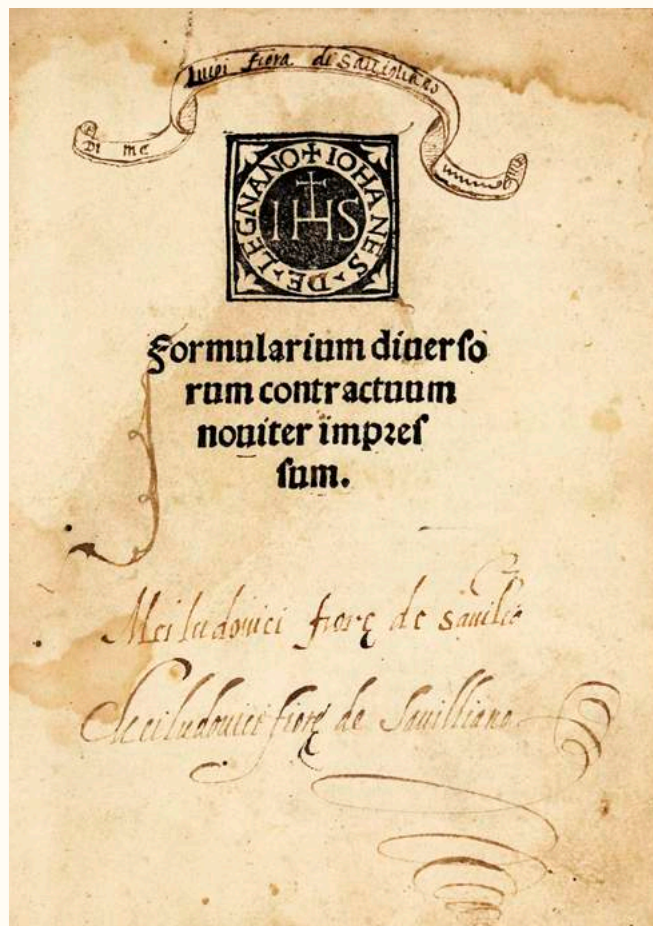 Di me Luigi fiera di Savigliano
✝ IOHANES · DE · LEGNANO
IHS
Formularium diuerso
rum contractuum
nouiter impres
sum.
Mei ludouici fierę de
Mei ludouici fierę de Sauilliano